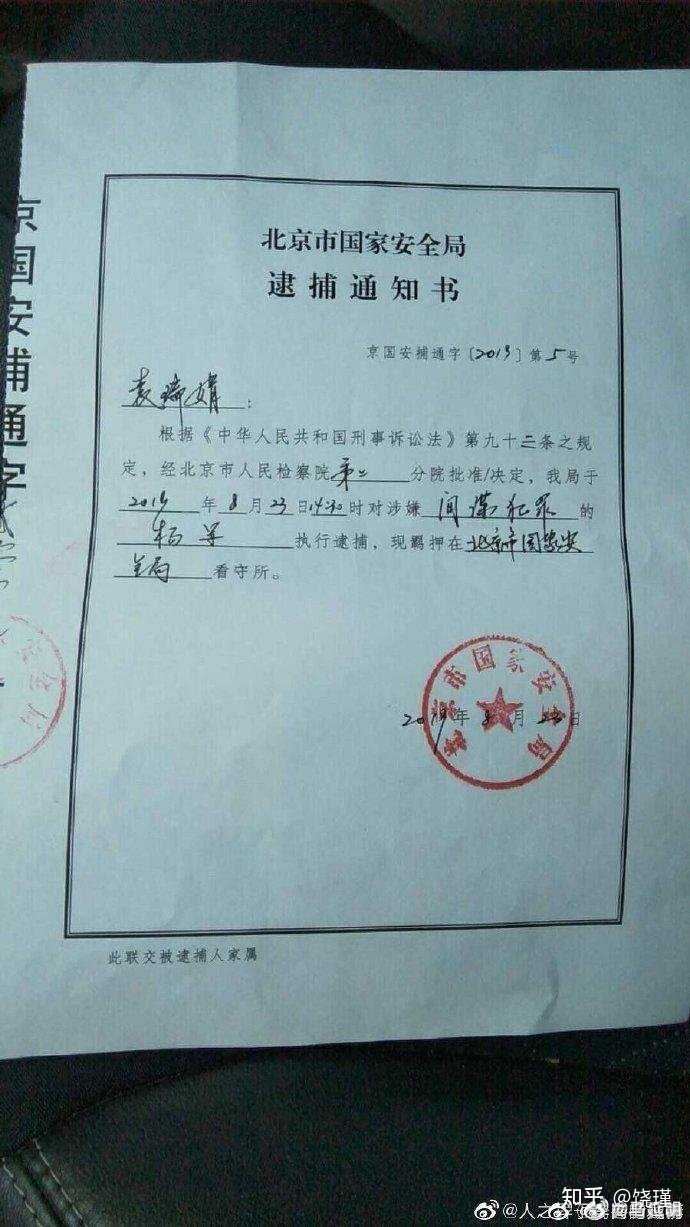 北京市国家安全局
逮捕通知书
京国安捕通字〔2019〕第5号
袁瑞娟：
根据《中华人民共和国刑事诉讼法》第九十三条之规
定，经北京市人民检察院第二分院批准/决定，我局于
2019年8月23日14:30时对涉嫌间谍犯罪的
杨军执行逮捕，现羁押在北京市国家安
全局看守所。
北京市国家安全局
2019年8月23日
此联交被逮捕人家属
京国安捕通字
知乎 @饶瑾